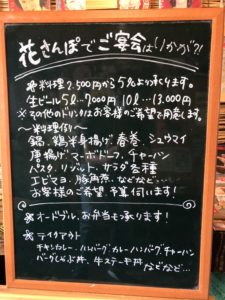 花さんぽでご宴会はいかが?!
※料理2.500円から5%より承ります。
生ビール5ℓ…7000円 10ℓ…13.000円
※その他のドリンクはお客様のご希望ご用意します。
〜料理例〜
鍋、鶏半身揚げ、春巻、シュウマイ
唐揚げ、マーボドーフ、チャーハン
パスタ、リゾット、サラダ各種
エビマヨ、豚角煮、などなど…
お客様のご希望、予算伺います!
オードブル、お弁当も承ります!
テイクアウト
チキンカレー、ハンバーグ、カレーハンバーグ、チャーハン
丼、牛ステーキ丼
などなど…